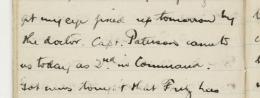 got my eye fixed up tomorrow by
the doctor. Capt. Paterson came to
us today as 2nd in Command.
Got news tonight that Fritz has